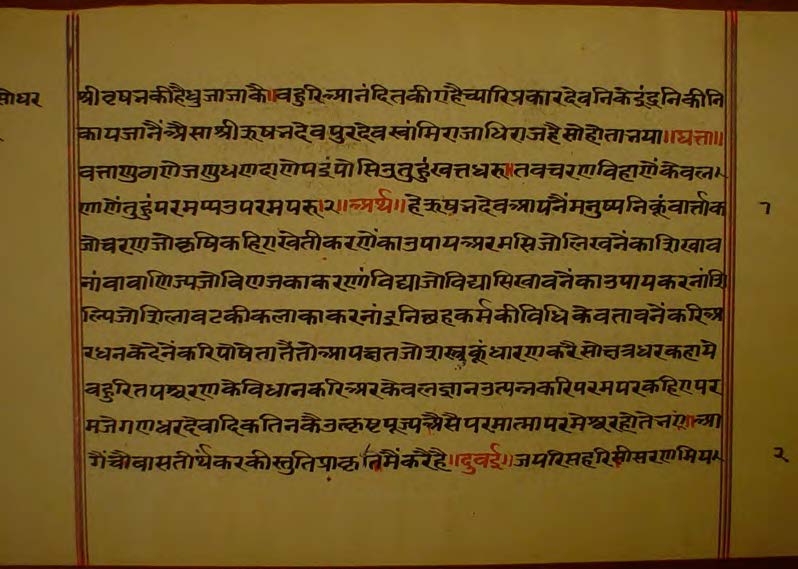 सोधर
श्रीवृषभकीहैधुजाजाकै॥वहुरिआनंदितकीएहैच्यारिप्रकारदेवनिकेइंद्रनिकीनि
कायजानैंअैसाश्रीऋषभदेवपुरदेवस्वांमिराजाधिराजहैसोहोताभया॥घत्ता॥
वत्ताणुठाणेजणुधणदाणेपइंपोसिउतुहुंखत्तधरु॥तवचरणविहाणेंकेवल
णाणेंतुहुंपरमप्पउपरमपरु॥२॥अर्थ॥हेऋषभदेवआपनैंमनुष्यनिकूंवार्त्ताक
जोचरणजोकृषिकहिएखेतीकरणेंकाउपायअरमसिजोलिखनेंकाशिखाव
नांवावाणिज्यजोविणजकाकरणांविद्याजोविद्यासिखावनेंकाउपायकरनांशि
ल्पिजोशिलावटकीकलाकाकरनांइनिछहकर्मकीविधिकेवतावनेंकरिअ
रधनकेदेनेंकरिपोषेतातैंतोआपछतजोशस्त्रकूंधारणकरैसोछत्रधरकहामे
वहुरितपश्चरणकेविधानकरिअरकेवलज्ञानउत्पन्नकरिपरमपरकहिएपर
मजेगणधरदेवादिकतिनकैउत्कृष्टपूज्यअैसैपरमात्मापरमेश्वरहोतेभए॥आ
गैंचौवीसतीर्थकरकीस्तुतिप्राकृतिमैंकरैहै॥दुवई॥जयरिसहरिसीसरणमिय
१
२